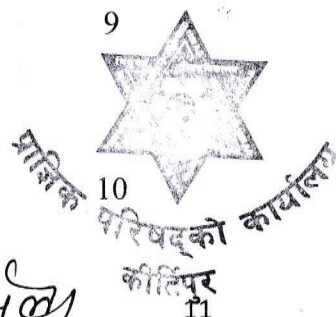 9
10
प्राज्ञिक परिषद्को कार्यालय
कीर्तिपुर
11